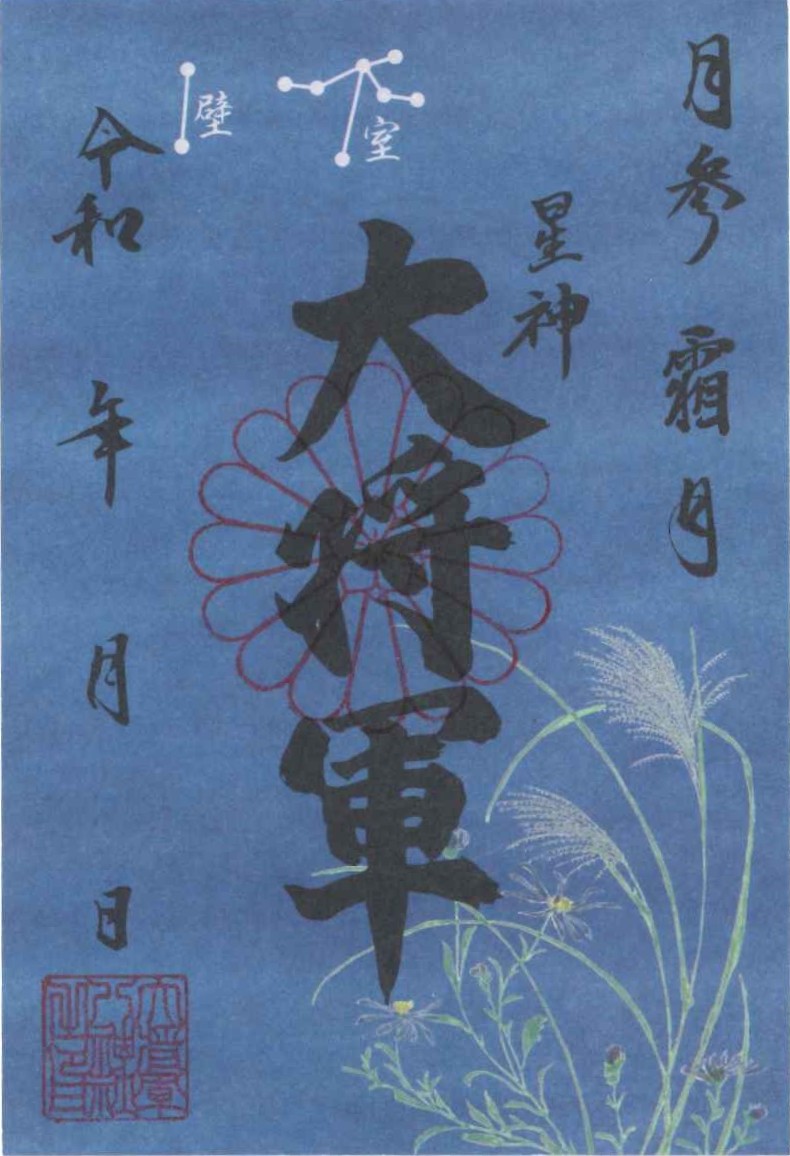 月参 霜月
星神
室
大将軍
壁
令和 年 月 日